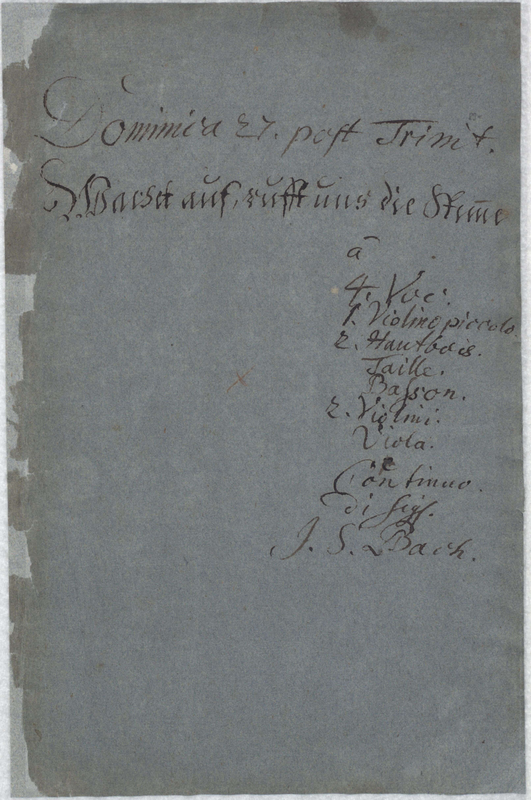 Dominica 27. post Trinit.
Wachet auf, rufft uns die Stim̄e
â
4. Voc.
1. Violino piccolo.
2. Hautbois.
Taille.
Basson.
2. Violini.
Viola.
è
Continuo.
di Sigł.
J. S. Bach.